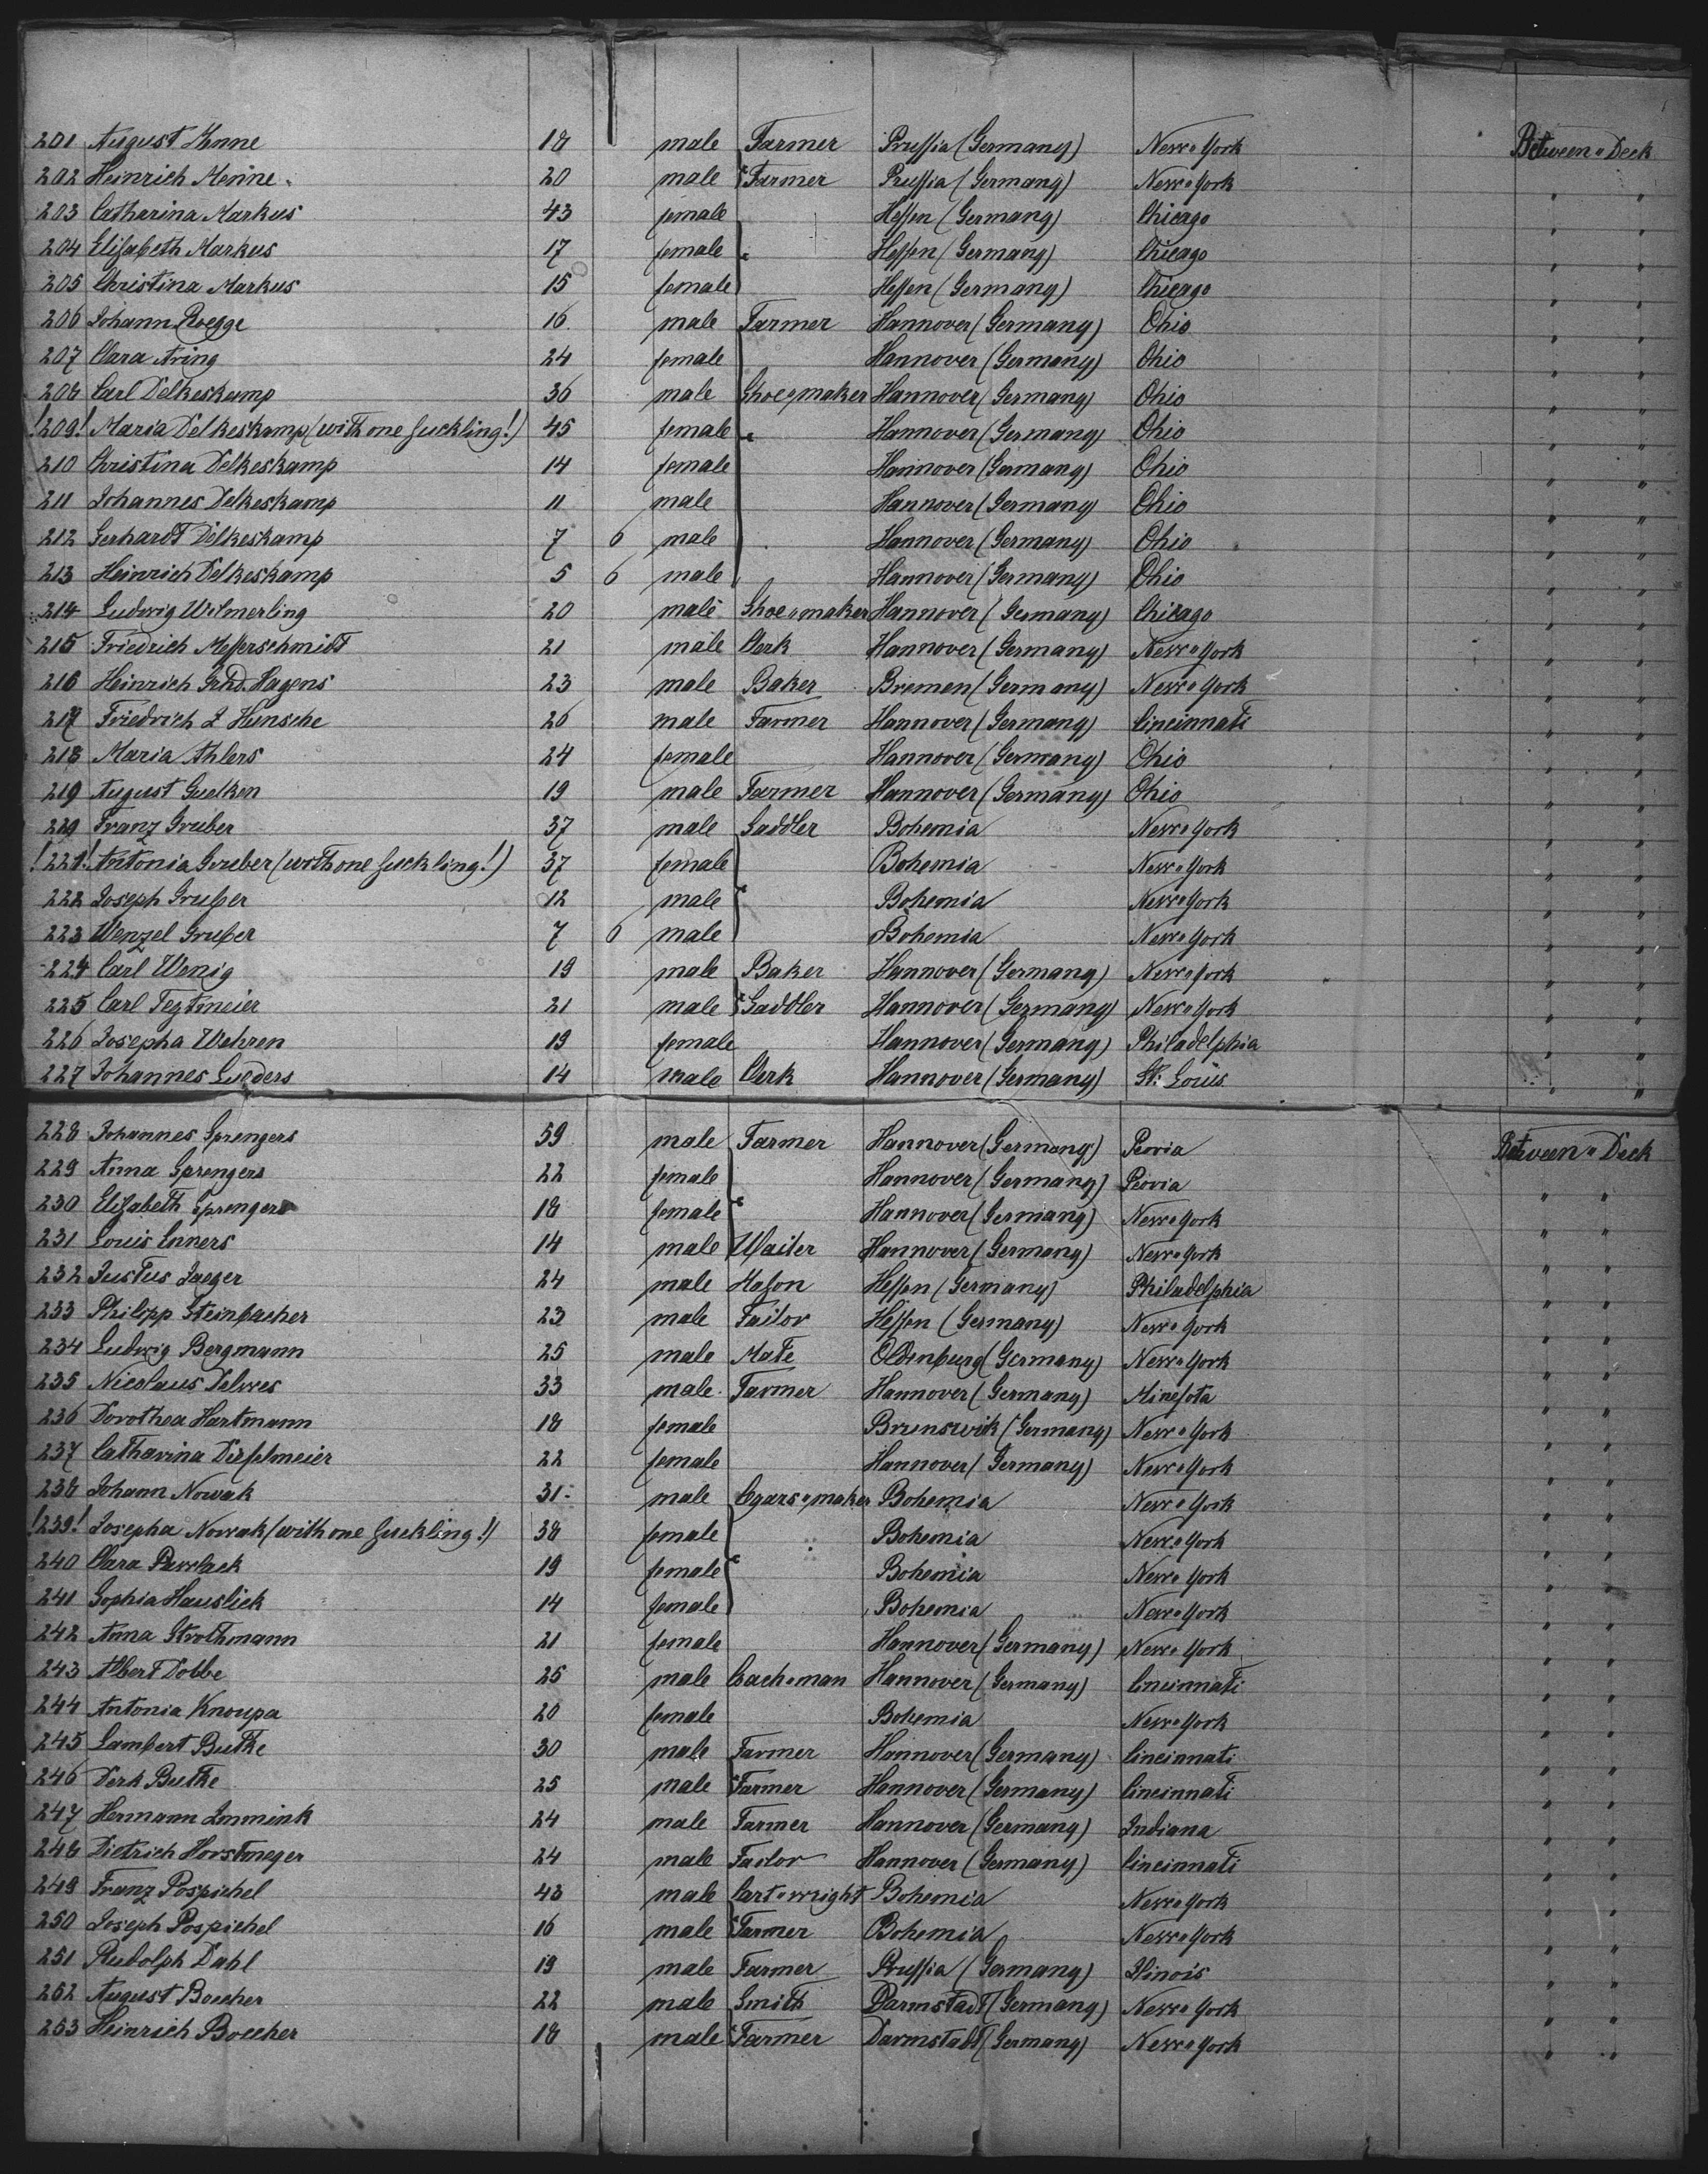 201 August Henne 18 male Farmer Prussia (Germany) New-York Between-Deck
202 Heinrich Menne 20 male Farmer Prussia (Germany) New-York " "
203 Catharina Markus 43 female Hessen (Germany) Chicago " "
204 Elisabeth Markus 17 female Hessen (Germany) Chicago " "
205 Christina Markus 15 female Hessen (Germany) Chicago " "
206 Johann Roegge 16 male Farmer Hannover (Germany) Ohio " "
207 Clara Aring 24 female Hannover (Germany) Ohio " "
208 Carl Delkeskamp 36 male Shoe-maker Hannover (Germany) Ohio " "
!209! Maria Delkeskamp (with one suckling!) 45 female Hannover (Germany) Ohio " "
210 Christina Delkeskamp 14 female Hannover (Germany) Ohio " "
211 Johannes Delkeskamp 11 male Hannover (Germany) Ohio " "
212 Gerhardt Delkeskamp 7 6 male Hannover (Germany) Ohio " "
213 Heinrich Delkeskamp 5 6 male Hannover (Germany) Ohio " "
214 Ludwig Wilmerling 20 male Shoe-maker Hannover (Germany) Chicago " "
215 Friedrich Messerschmidt 21 male Clerk Hannover (Germany) New-York " "
216 Heinrich Grhd. Hagens 23 male Baker Bremen (Germany) New-York " "
217 Friedrich L Hensche 26 male Farmer Hannover (Germany) Cincinnati " "
218 Maria Ahlers 24 female Hannover (Germany) Ohio " "
219 August Guelken 19 male Farmer Hannover (Germany) Ohio " "
220 Franz Gruber 37 male Saddler Bohemia New-York " "
!221! Antonia Gruber (with one suckling!) 37 female Bohemia New-York " "
222 Joseph Gruber 12 male Bohemia New-York " "
223 Wenzel Gruber 7 6 male Bohemia New-York " "
224 Carl Wenig 19 male Baker Hannover (Germany) New-York " "
225 Carl Tegtmeier 21 male Saddler Hannover (Germany) New-York " "
226 Josepha Wehren 19 female Hannover (Germany) Philadelphia " "
227 Johannes Lueders 14 male Clerk Hannover (Germany) St: Louis " "
228 Johannes Sprengers 59 male Farmer Hannover (Germany) Peoria Between-Deck
229 Anna Sprengers 22 female Hannover (Germany) Peoria " "
230 Elisabeth Sprengers 18 female Hannover (Germany) New-York " "
231 Louis Enners 14 male Waiter Hannover (Germany) New-York " "
232 Justus Jaeger 24 male Mason Hessen (Germany) Philadelphia " "
233 Philipp Steinbacher 23 male Tailor Hessen (Germany) New-York " "
234 Ludwig Bergmann 25 male Mate Oldinburg (Germany) New-York " "
235 Nicolaus Delwes 33 male Farmer Hannover (Germany) Minesota " "
236 Dorothea Hartmann 18 female Brunswik (Germany) New-York " "
237 Catharina Diesselmeier 22 female Hannover (Germany) New-York " "
238 Johann Nowak 31 male Cgars-maker Bohemia New-York " "
!239! Josepha Nowak (with one suckling!) 38 female Bohemia New-York " "
240 Clara Pawlack 19 female Bohemia New-York " "
241 Sophia Hauslick 14 female Bohemia New-York " "
242 Anna Strothmann 21 female Hannover (Germany) New-York " "
243 Albert Dobbe 25 male Coach-man Hannover (Germany) Cincinnati " "
244 Antonia Knoupa 20 female Bohemia New-York " "
245 Lambert Butke 30 male Farmer Hannover (Germany) Cincinnati " "
246 Derk Butke 25 male Farmer Hannover (Germany) Cincinnati " "
247 Hermann Immink 24 male Farmer Hannover (Germany) Indiana " "
248 Dietrich Horstmeyer 24 male Tailor Hannover (Germany) Cincinnati " "
249 Franz Pospichel 43 male Cart-wright Bohemia New-York " "
250 Joseph Pospichel 16 male Farmer Bohemia New-York " "
251 Rudolph Dahl 19 male Farmer Prussia (Germany) Ilinois " "
252 August Boecher 22 male Smith Darmstadt (Germany) New-York " "
253 Heinrich Boecher 18 male Farmer Darmstadt (Germany) New-York " "